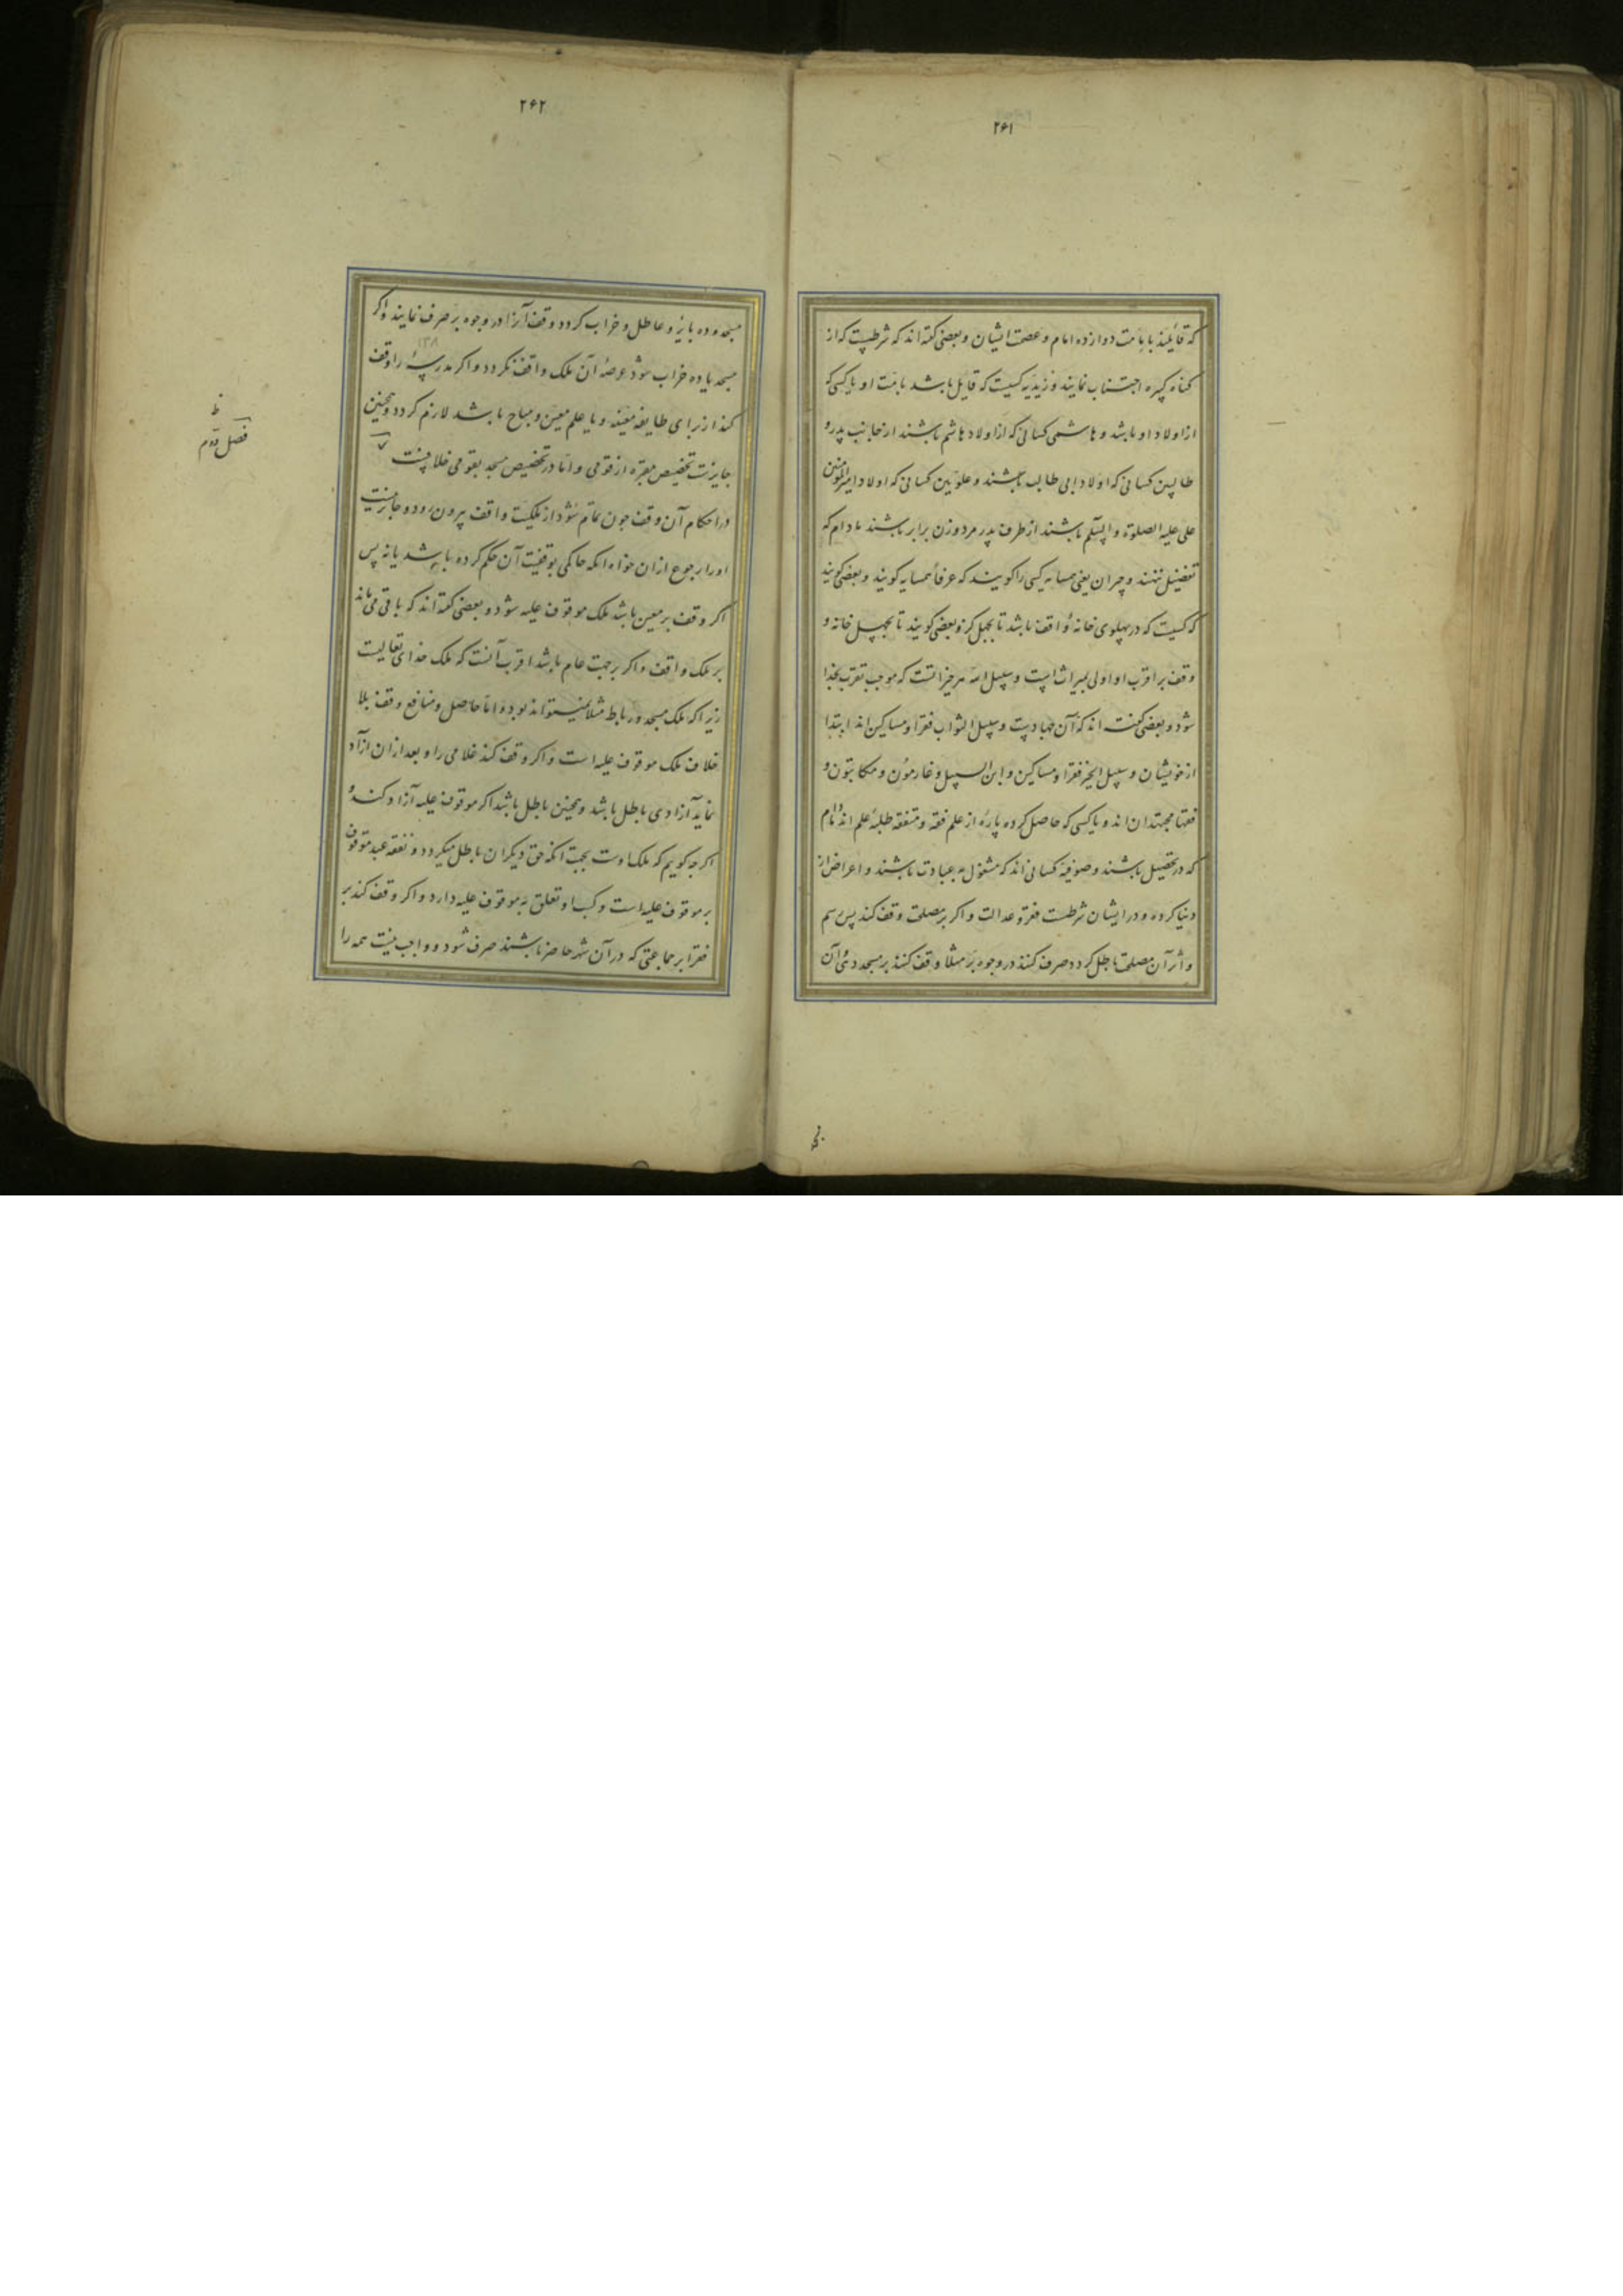 ۲۶۱
که قایلند بامامت دوازده امام و عصمت ایشان و بعضی کفته‌اند که شرطست که از
کناه کبیره اجتناب نمایند و زیدیه کسیست که قایل باشد بامامت او یا کسی که
از اولاد او باشد و هاشمی کسانی که از اولاد هاشم باشند از جانب پدر و
طالبین کسانی که اولاد ابی طالب باشند و علویین کسانی که اولاد امیرالمؤمنین
علی علیه الصلوة و السلم باشند از طرف پدر مرد و زن برابر باشند مادام که
تفضیل ننهند و جیران یعنی همسایه کسی را کویند که عرفاً همسایه کویند و بعضی کویند
که کسیست که در پهلوی خانهٔ واقف باشد تا بچهل کز و بعضی کویند تا بچهل خانه و
وقف بر اقرب او اولی بمیراث است و سبیل الله هر چیزاتست که موجب تقرب بخدا
شود و بعضی کفته‌اند که آن جهادست و سبیل الثواب فقرا و مساکین‌اند ابتدا
از خویشان و سبیل الخیر فقرا و مساکین و ابن السبیل و غارمون و مکاتبون و
فقها مجتهدان‌اند و یا کسی که حاصل کرده پارهٔ از علم فقه و متفقه طلبهٔ علم‌اند مادام
که در تحصیل باشند و صوفیه کسانی‌اند که مشغول به عبادت باشند و اعراض از
دنیا کرده و در ایشان شرطست فقر و عدالت و اکر بر مصلحت وقف کند پس رسم
و اثر آن مصلحت باطل کردد صرف کنند در وجوه بر مثلا وقف کنند بر مسجد دهی و آن
۲۶۲
مسجد و ده بایر و عاطل و خراب کردد وقف آنرا در وجوه بر صرف نمایند و اکر
۱۳۸
مسجد یا ده خراب شود عرصهٔ آن ملک واقف نکردد و اکر مدرسهٔ را وقف
کند از برای طایفه معینه و یا علم معین و مباح باشد لازم کردد و همچنین
جایزست تخصیص مقبره از قومی و اما در تخصیص مسجد بقومی خلافست
در احکام آن وقف چون تمام شود از ملکیت واقف بیرون رود و جایز نیست
او را رجوع از ان خواه انکه حاکمی بوقفیت آن حکم کرده باشد یا نه پس
اکر وقف بر معین باشد ملک موقوف علیه شود و بعضی کفته‌اند که باقی می‌ماند
بر ملک واقف و اکر بر جهت عام باشد اقرب آنست که ملک خدای تعالیست
زیرا که ملک مسجد و رباط مثلا نمیتواند بود و اما حاصل و منافع وقف بلا
خلاف ملک موقوف علیه است و اکر وقف کند غلامی را و بعد از ان آزاد
نماید آزادی باطل باشد و همچنین باطل باشد اکر موقوف علیه آزاد کند و
اکر چه کویم که ملک اوست بجهت انکه حق دیکران باطل میکردد و نفقه عبد موقوف
بر موقوف علیه است و کسب او تعلق به موقوف علیه دارد و اکر وقف کند بر
فقرا بر جماعتی که در آن شهر حاضر باشند صرف شود و واجب نیست همه را
فصل دوم